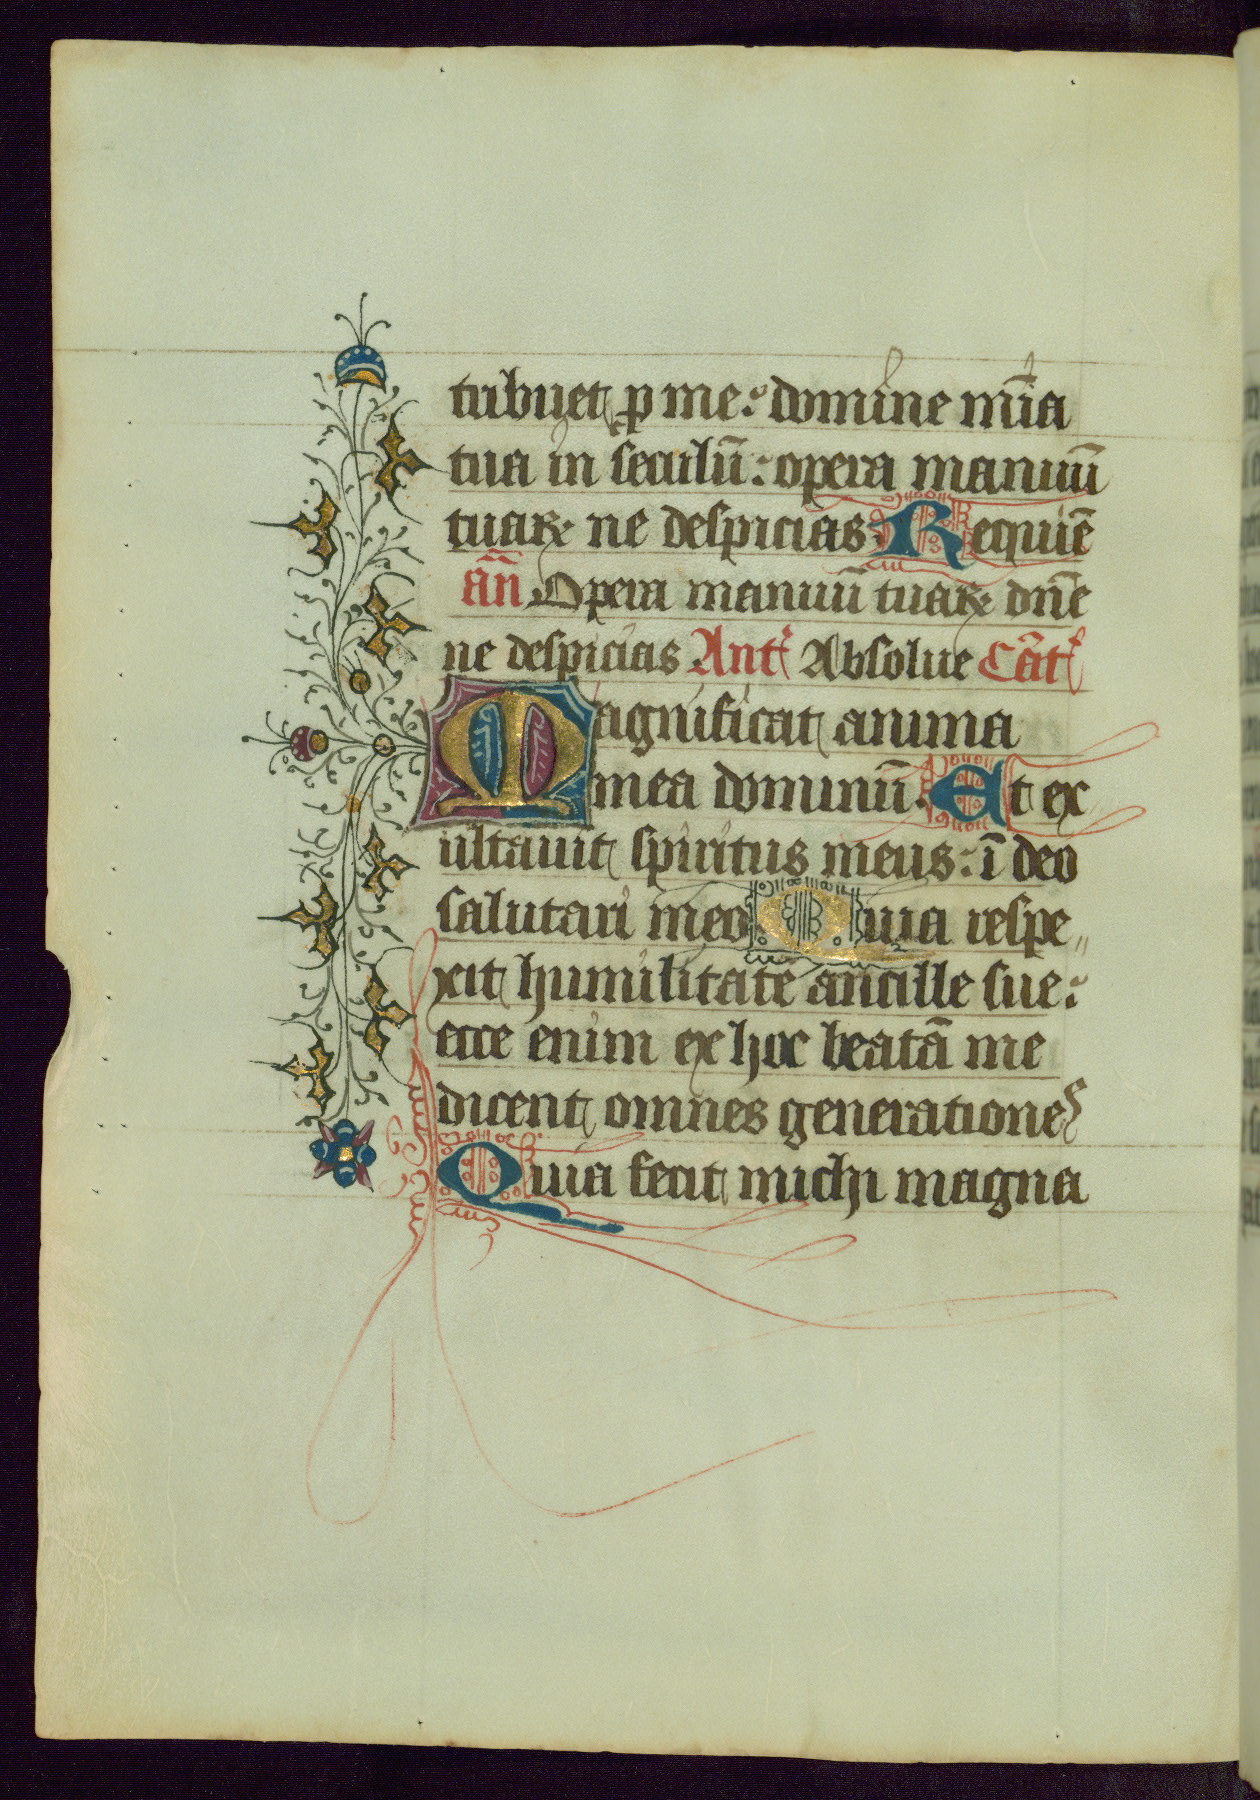 tribuet p me: domine mīa
tua in seculū: opera manuū
tuaꝝ ne despicias Requiē
an̄ Opera manuū tuaꝝ dn̄e
ne despicias Ant Absolue Cāt
Magnificat anima
mea dominū. Et ex
ultauit spiritus meus: ī deo
salutari meo Quia respe„
xit humilitatē ancille sue:
ecce enim ex hoc beatā me
dicent omnes generationes
Quia fecit michi magna